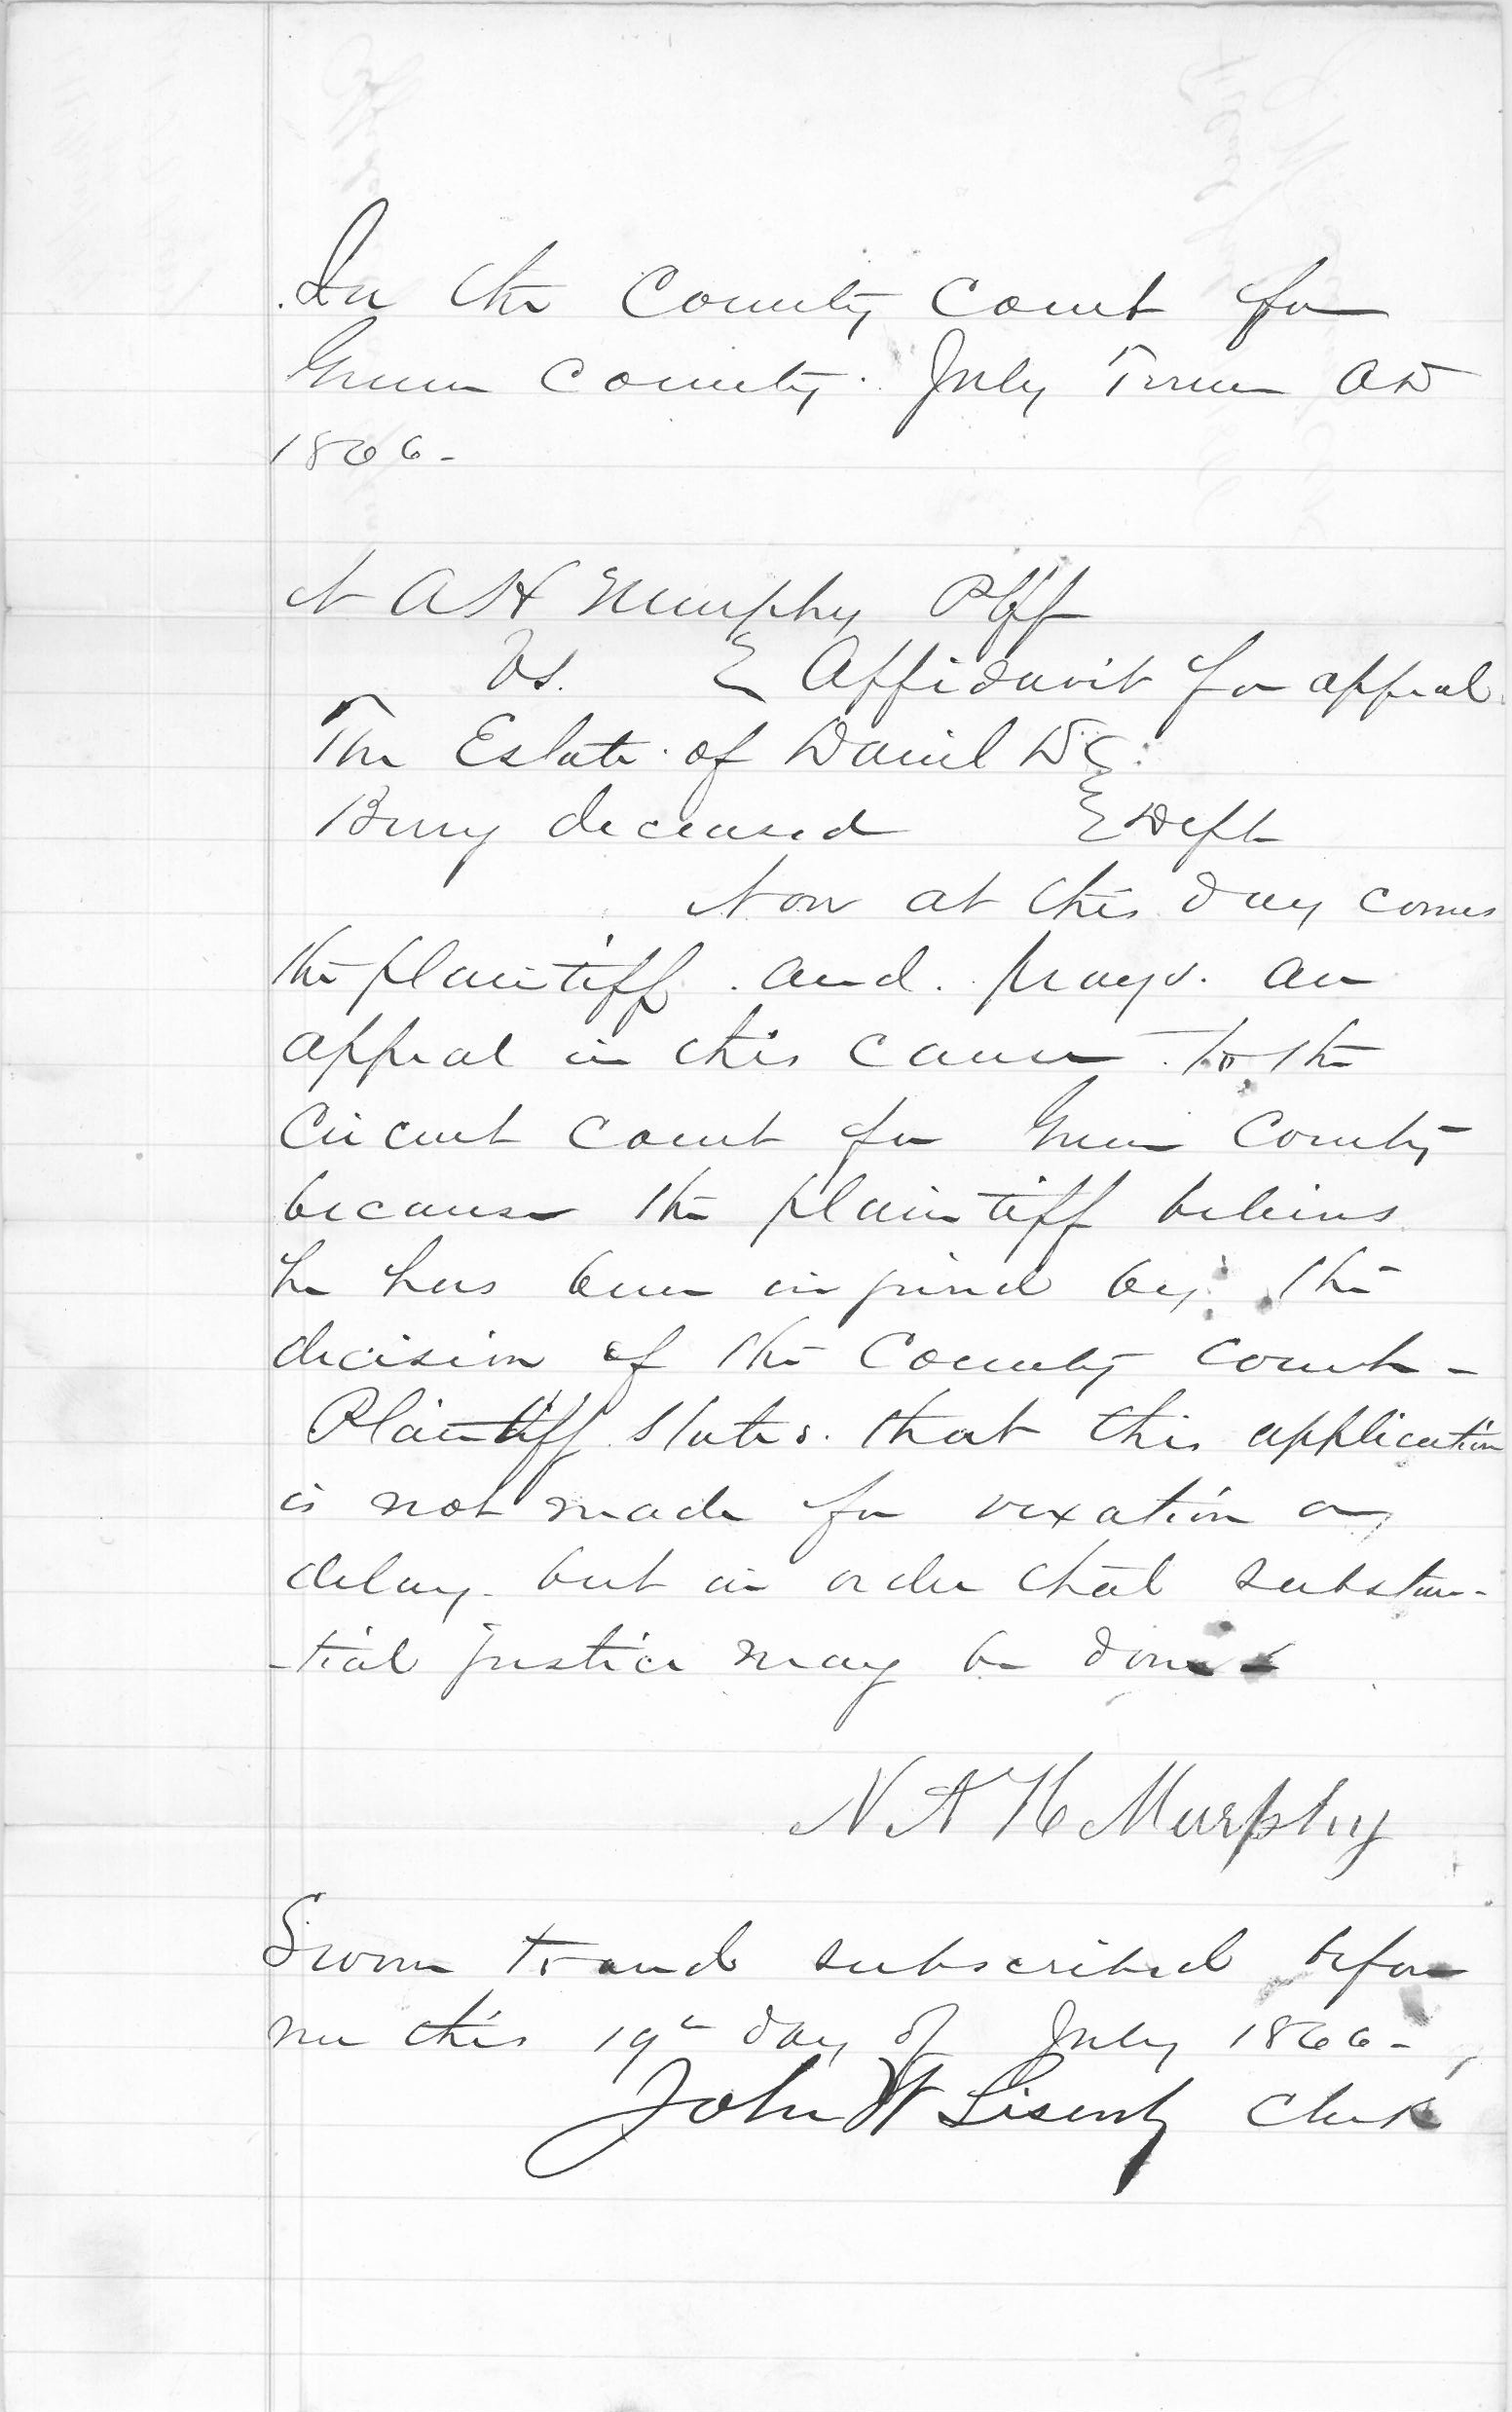 In the County Court for
Green County. July Term AD
1866-
N A H Murphy Plff
Vs. } Affidavit for appeal.
The Estate of Daniel D }
Berry deceased } Deft
Now at this day comes
the plaintiff and prays an
appeal in this cause to the
Circuit Court for Green County
because the plaintiff believes
he has been injured by the
decision of the County Court -
Plaintiff states that this application
is not made for vexation or
delay - but in order that substan-
-tial justice may be done
N A H Murphy
Sworn to and subscribed before
me this 19th day of July 1866-
John W Lisenby Clerk